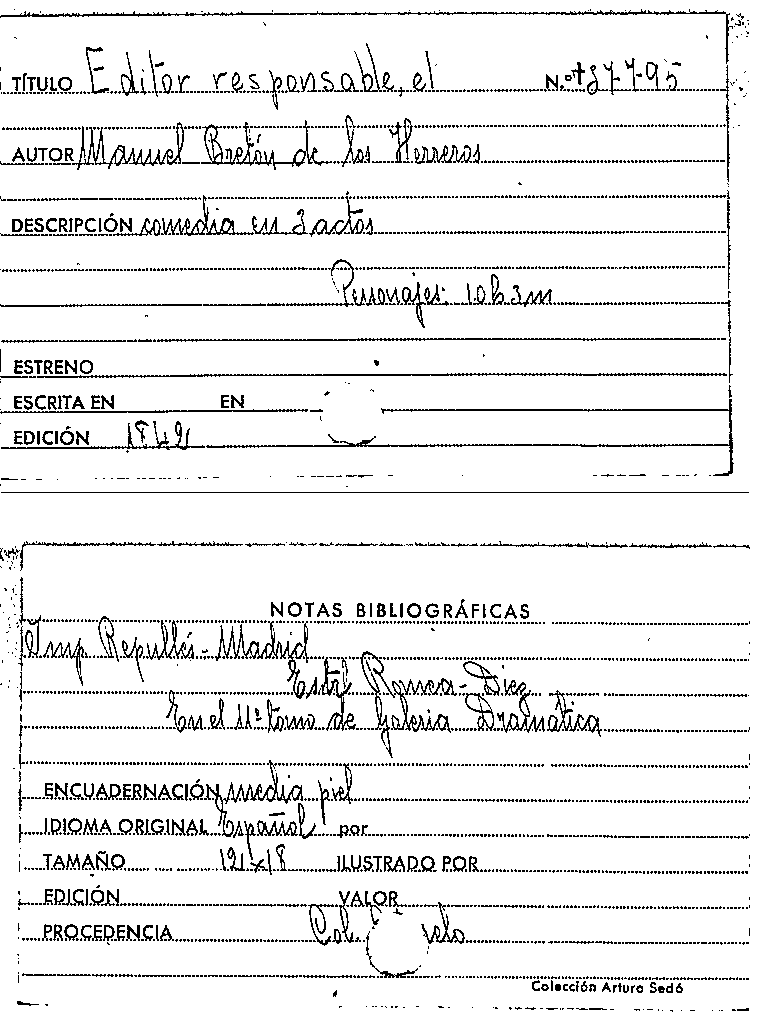 TÍTULO Editor responsable, el N.º
AUTOR Manuel Bretón de los Herreros
DESCRIPCIÓN comedia en 3 actos
Personajes: 10h 3m
ESTRENO
ESCRITA EN EN
EDICIÓN 1842
NOTAS BIBLIOGRÁFICAS
Imp Repullés - Madrid
Romea - Diez
En el 11º tomo de Galeria Dramática
ENCUADERNACIÓN media piel
IDIOMA ORIGINAL Español por
TAMAÑO 12x18 ILUSTRADO POR
EDICIÓN VALOR
PROCEDENCIA Col.
Colección Arturo Sedó